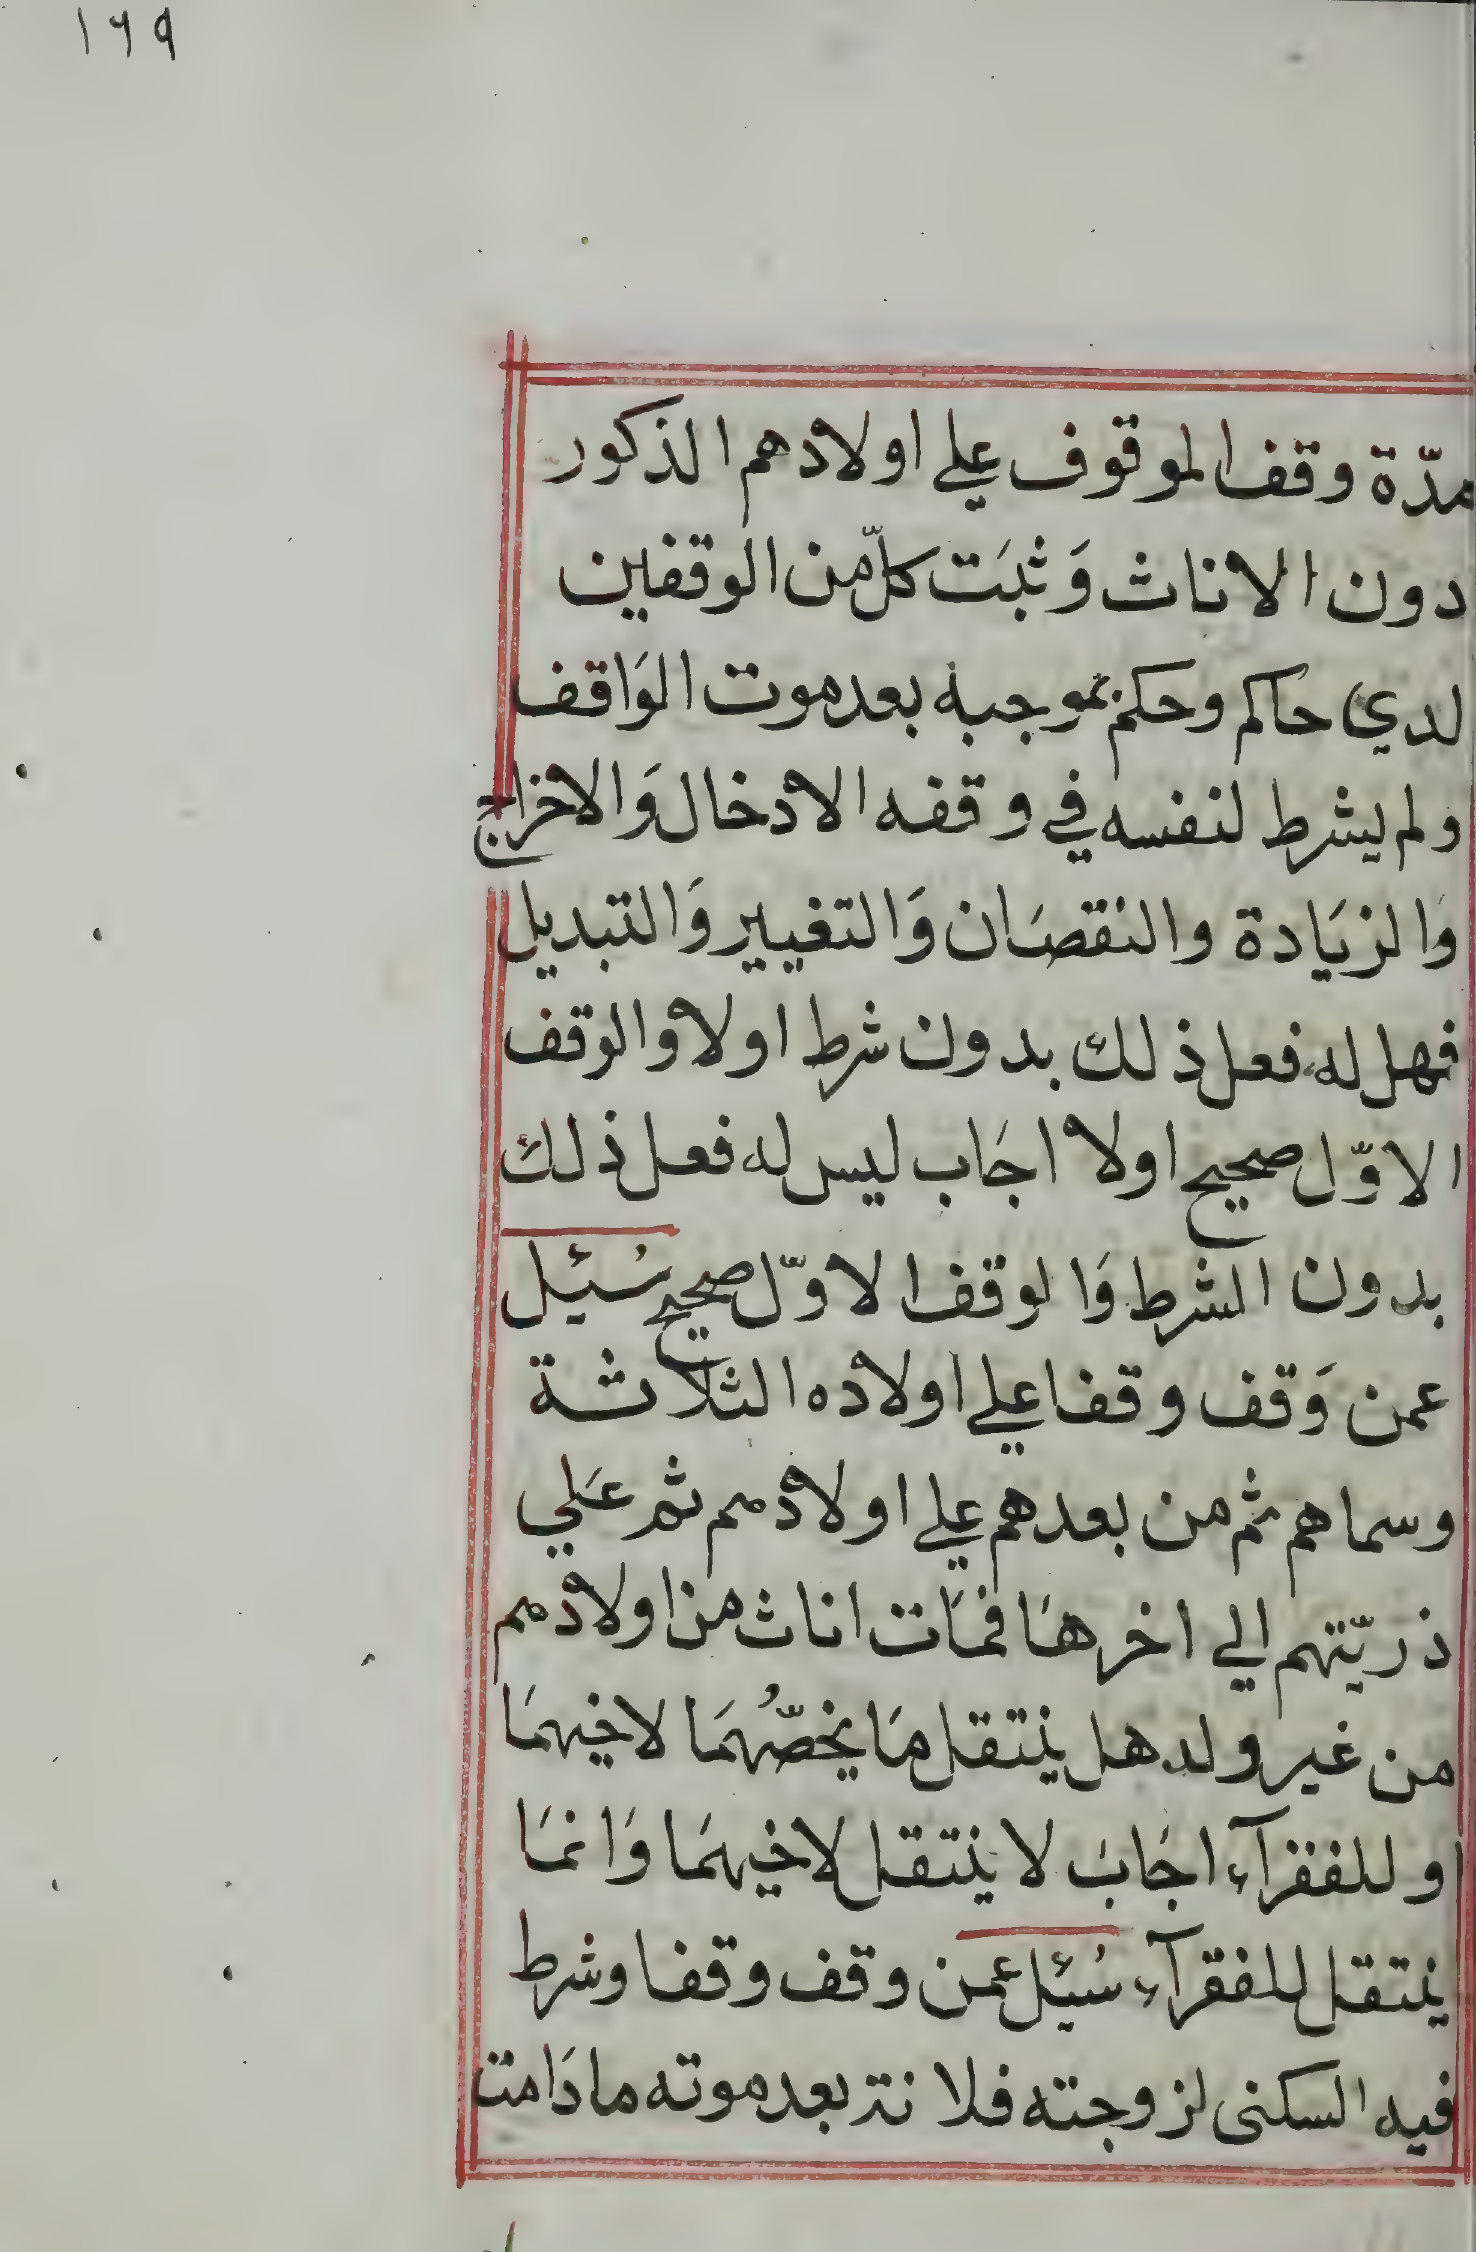 ١٦٩
مدّة وقف الموقوف علي اولادهم الذكور
دون الاناث وَثبَت كلّ من الوقفين
لدي حاكم وحكم بموجبه بعد موت الوَاقف
ولم يشرط لنفسه في وقفه الادخال وَالاخراج
وَالزيَادة والنقصَان وَالتغيير وَالتبديل
فهل له فعل ذلك بدون شرط اولا والوقف
الاوّل صحيح اولا اجَاب ليس له فعل ذلك
بدون الشرط وَالوقف الاوّل صحيح سُئِل
عمن وَقف وقفا علي اولاده الثلاثة
وسماهم ثم من بعدهم علي اولادهم ثم عَلي
ذريّتهم الي اخرهَا فمَات اناث من اولادهم
من غير ولد هل ينتقل مَا يخصّهُمَا لاخيهمَا
او للفقرآء اجَابَ لا ينتقل لاخيهمَا وَانمَا
ينتقل للفقرآء سُئِل عمن وقف وقفا وشرط
فيه السكنى لزوجته فلانة بعد موته ما دَامت